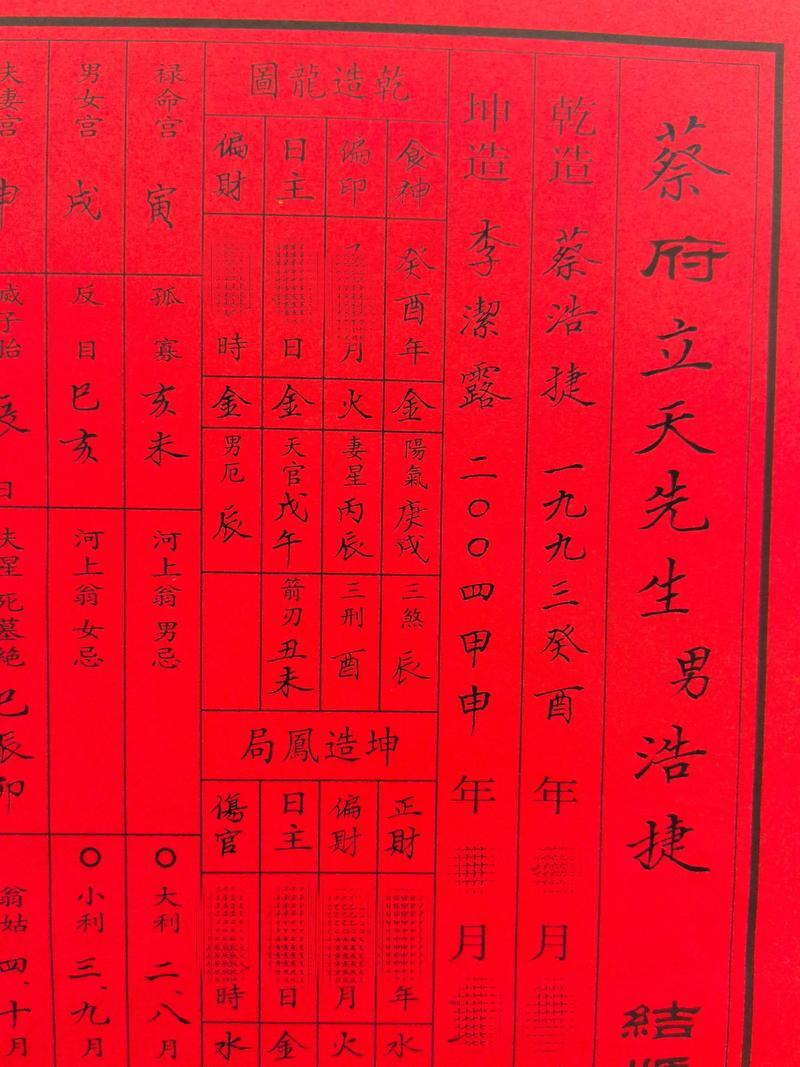 蔡府立天先生 男 浩捷 結
乾造 蔡浩捷 一九九三癸酉 年 月
坤造 李潔露 二〇〇四甲申 年 月
乾造龍圖
食神 癸酉年 金 陽氣 庚戌 三煞 辰
偏印 月 火 妻星 丙辰 三刑 酉
日主 日 金 天官 戊午 箭刃 丑未
偏財 時 金 男厄 辰
坤造鳳局
正財 年 水
偏財 月 火
日主 日 金
傷官 時 水
禄命宮 寅 孤寡 亥未 河上翁男忌 〇大利 二、八月
男女宮 戌 反目 巳亥 河上翁女忌 〇小利 三、九月
夫妻宮 申 滅子胎 辰 夫星死墓絕 巳辰卯 翁姑 四、十月